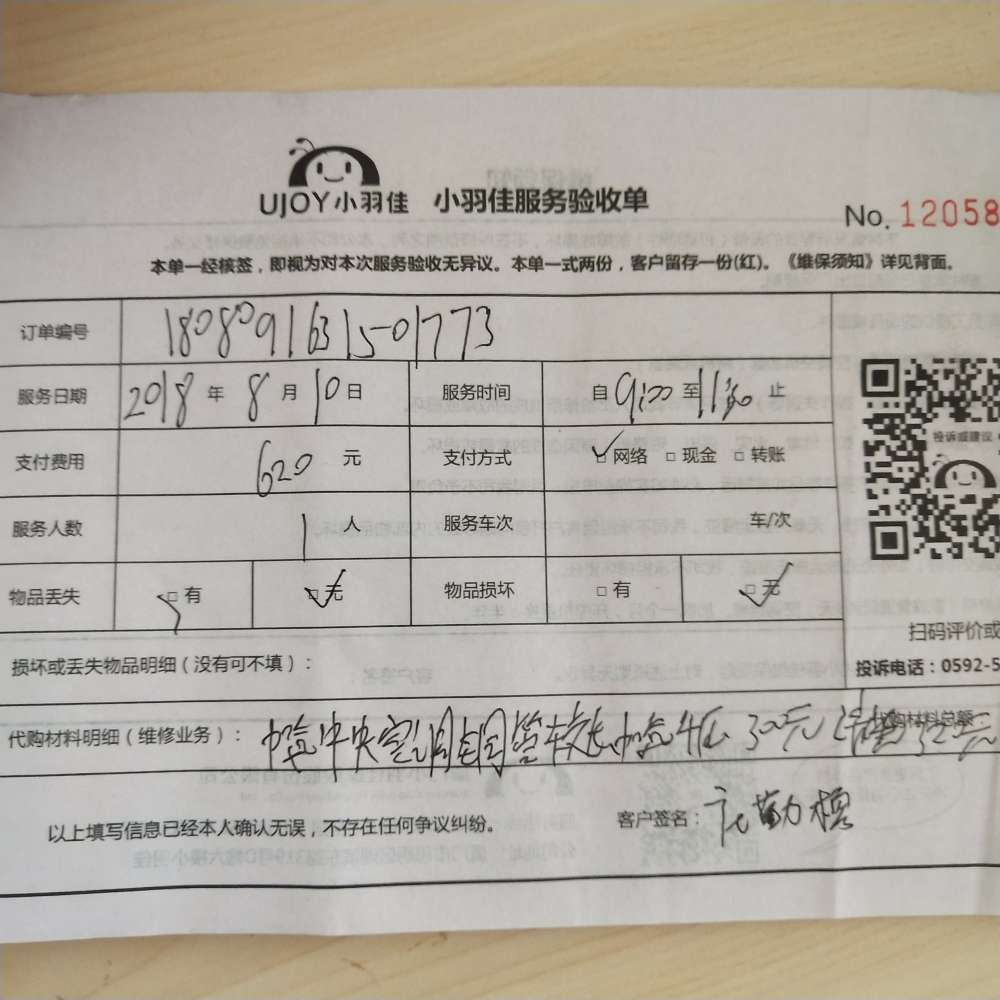 UJOY小羽佳 小羽佳服务验收单
No. 12058
本单一经核签，即视为对本次服务验收无异议。本单一式两份，客户留存一份(红)。《维保须知》详见背面。
订单编号 1808091631501773
服务日期 2018 年 8 月 10 日 服务时间 自 9:00 至 11:30 止
支付费用 620 元 支付方式 □网络 □现金 □转账
投诉或建议
服务人数 1 人 服务车次 车/次
物品丢失 □有 □无 物品损坏 □有 □无
扫码评价或
损坏或丢失物品明细（没有可不填）：
投诉电话：0592-5
代购材料明细（维修业务）： 中央空调铜管 300元 代购材料总额 元
以上填写信息已经本人确认无误，不存在任何争议纠纷。 客户签名：